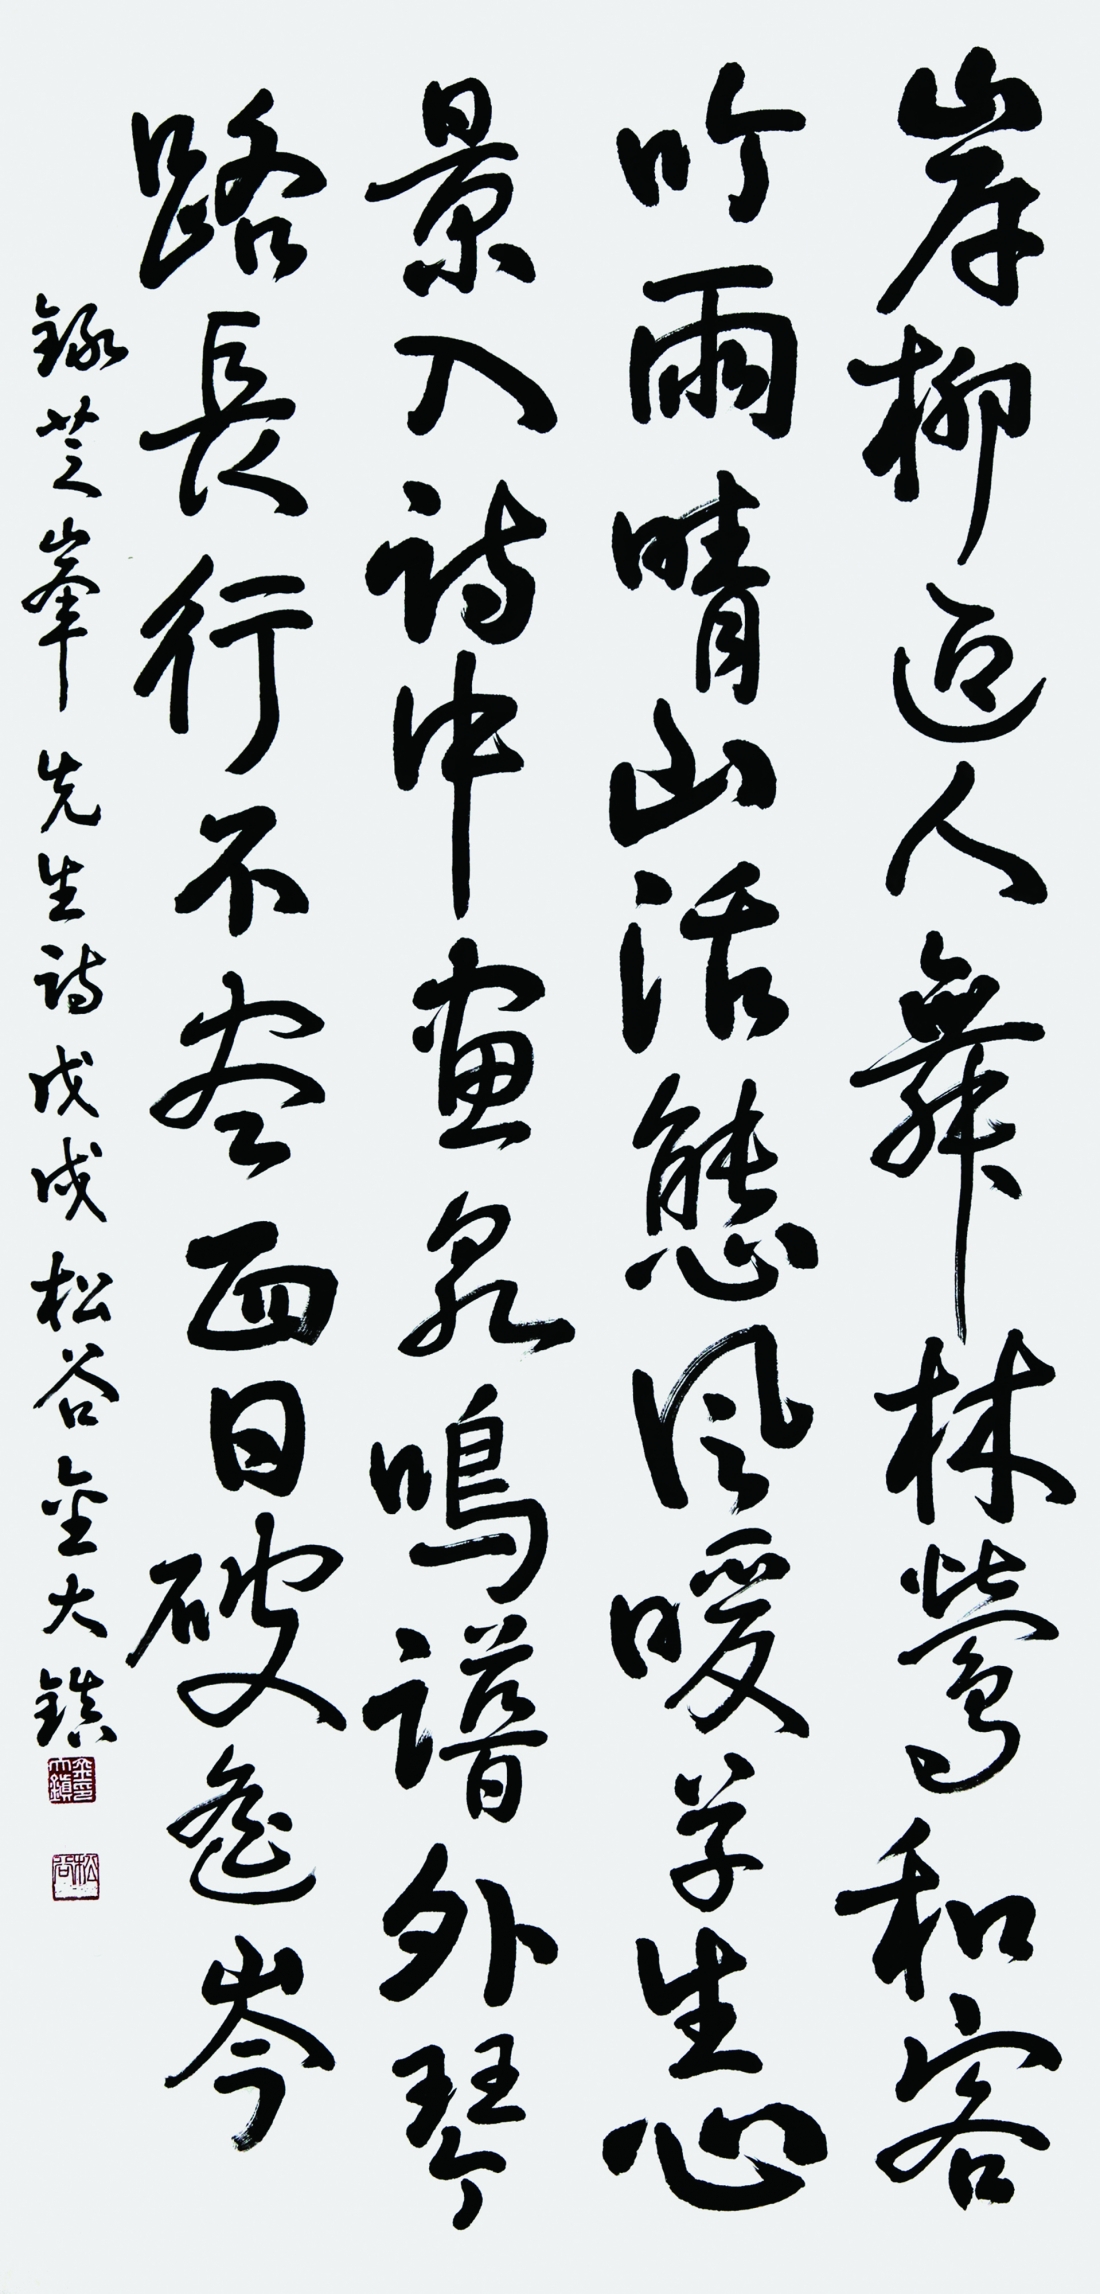 岸柳迎人舞林鶯和客
吟雨晴山活態風暖草生心
景入詩中畫泉鳴譜外琴
路長行不盡西日破遙岑
錄芝峯先生詩戊戌松谷金大鎮
金大鎮印
松谷